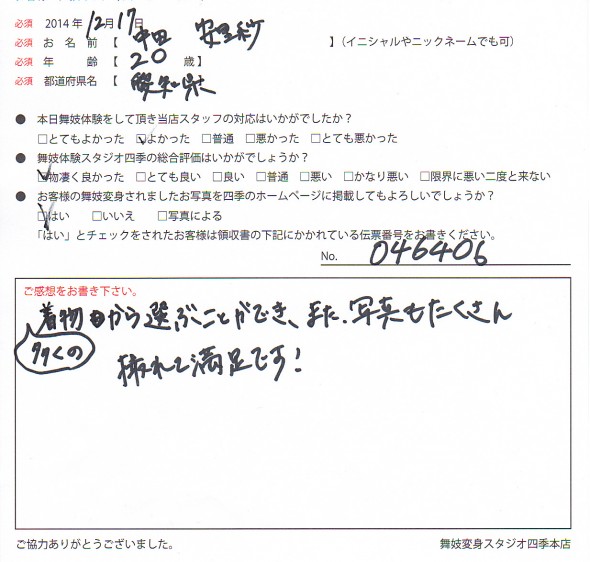 必須 2014年12月17日
必須 お名前【 中田 安里紗 】(イニシャルやニックネームでも可)
必須 年齢【 20 歳】
必須 都道府県名【 愛知県
● 本日舞妓体験をして頂き当店スタッフの対応はいかがでしたか?
□とてもよかった ☑よかった □普通 □悪かった □とても悪かった
● 舞妓体験スタジオ四季の総合評価はいかがでしょうか?
☑物凄く良かった □とても良い □良い □普通 □悪い □かなり悪い □限界に悪い二度と来ない
● お客様の舞妓変身されましたお写真を四季のホームページに掲載してもよろしいでしょうか?
☑はい □いいえ □写真による
「はい」とチェックをされたお客様は領収書の下記にかかれている伝票番号をお書きください。
No. 046406
ご感想をお書き下さい。
着物から選ぶことができ、また、写真もたくさん
多くの
撮れて満足です!
ご協力ありがとうございました。
舞妓変身スタジオ四季本店